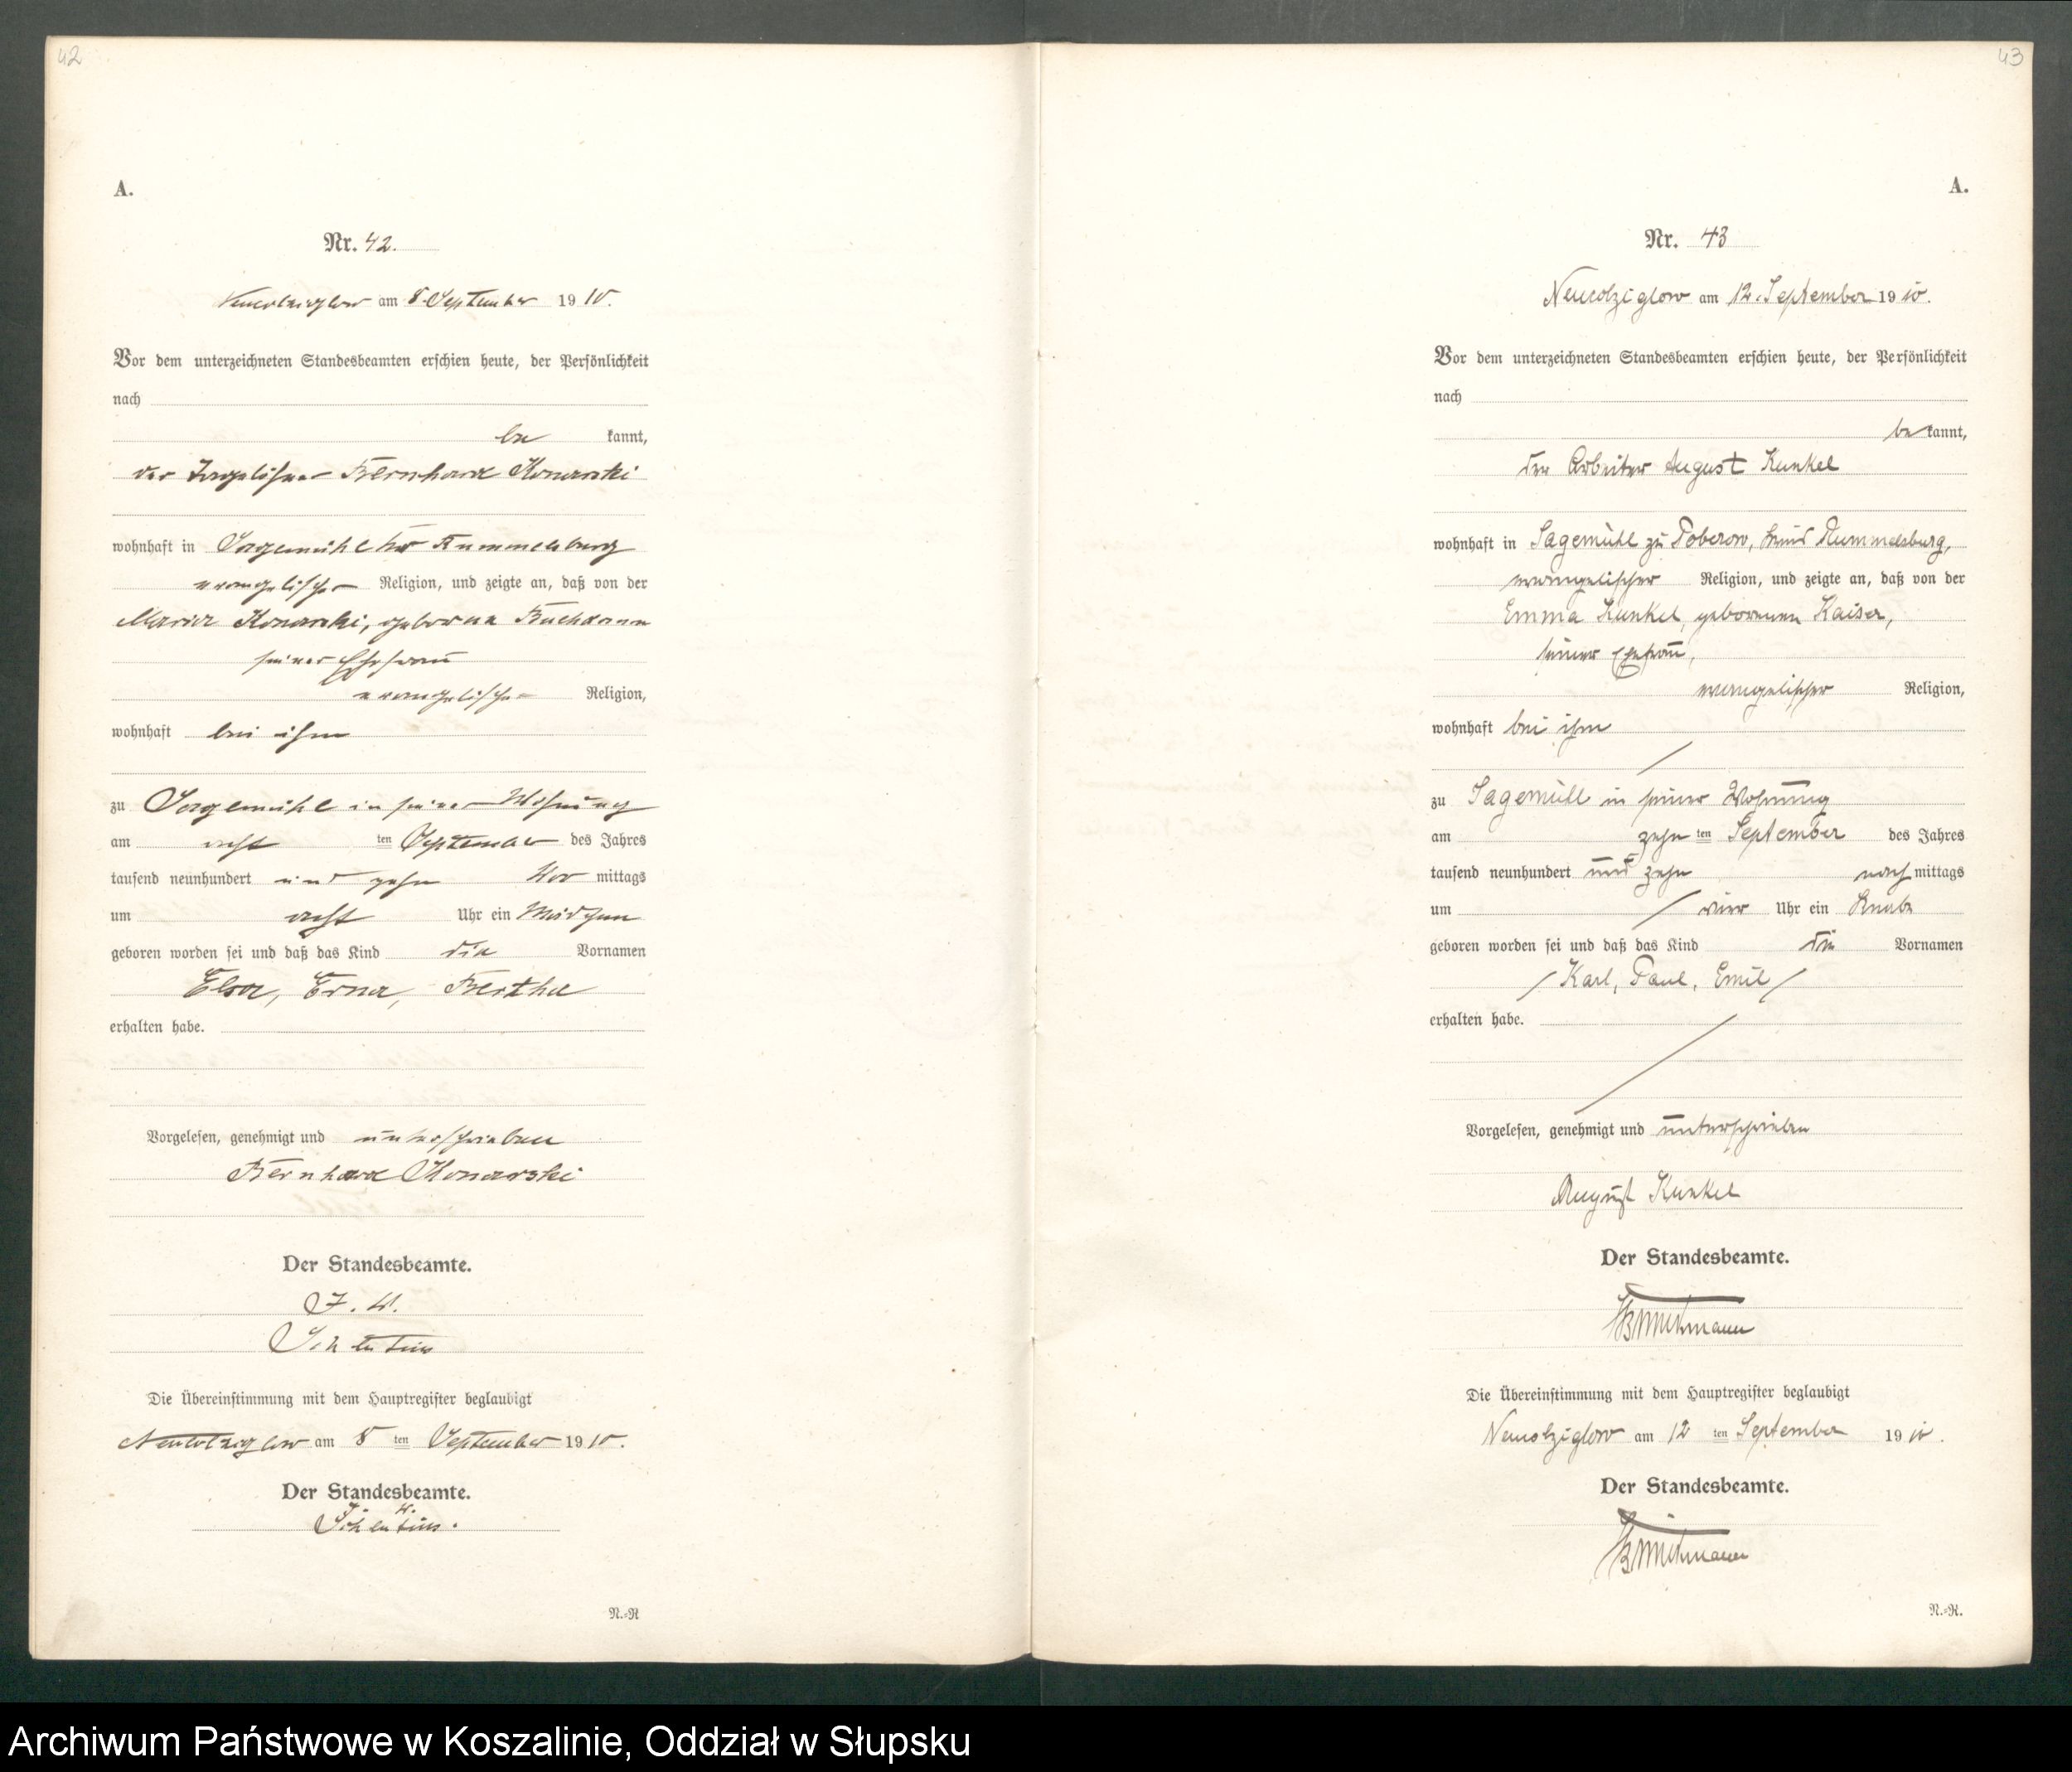 42
A.
Nr. 42.
Neukolziglow am 8. September 1910.
Vor dem unterzeichneten Standesbeamten erschien heute, der Persönlichkeit
nach
be kannt,
der Tagelöhner Bernhard Konarski
wohnhaft in Sagemühl Rummelsburg
evangelischer Religion, und zeigte an, daß von der
Maria Konarski, geborene
seiner Ehefrau
evangelischer Religion,
wohnhaft bei ihm
zu Sagemühl in seiner Wohnung
am acht ten September des Jahres
tausend neunhundert und zehn Vor mittags
um acht Uhr ein Mädchen
geboren worden sei und daß das Kind die Vornamen
Elsa, Erna, Bertha
erhalten habe.
Vorgelesen, genehmigt und unterschrieben
Bernhard Konarski
Der Standesbeamte.
J. V.
Die Übereinstimmung mit dem Hauptregister beglaubigt
Neukolziglow am 8 ten September 1910.
Der Standesbeamte.
J. V.
N.=R
43
A.
Nr. 43
Neucolziglow am 12. September 1910.
Vor dem unterzeichneten Standesbeamten erschien heute, der Persönlichkeit
nach
be kannt,
der Arbeiter August Kunkel
wohnhaft in Sagemühl zu Poberow, Kreis Rummelsburg,
evangelischer Religion, und zeigte an, daß von der
Emma Kunkel, geborenen Kaiser,
seiner Ehefrau,
evangelischer Religion,
wohnhaft bei ihm
zu Sagemühl in seiner Wohnung
am zehn ten September des Jahres
tausend neunhundert und zehn nach mittags
um vier Uhr ein Knabe
geboren worden sei und daß das Kind die Vornamen
Karl, Paul, Emil
erhalten habe.
Vorgelesen, genehmigt und unterschrieben
August Kunkel
Der Standesbeamte.
Die Übereinstimmung mit dem Hauptregister beglaubigt
Neucolziglow am 12 ten September 1910.
Der Standesbeamte.
N.=R.
Archiwum Państwowe w Koszalinie, Oddział w Słupsku